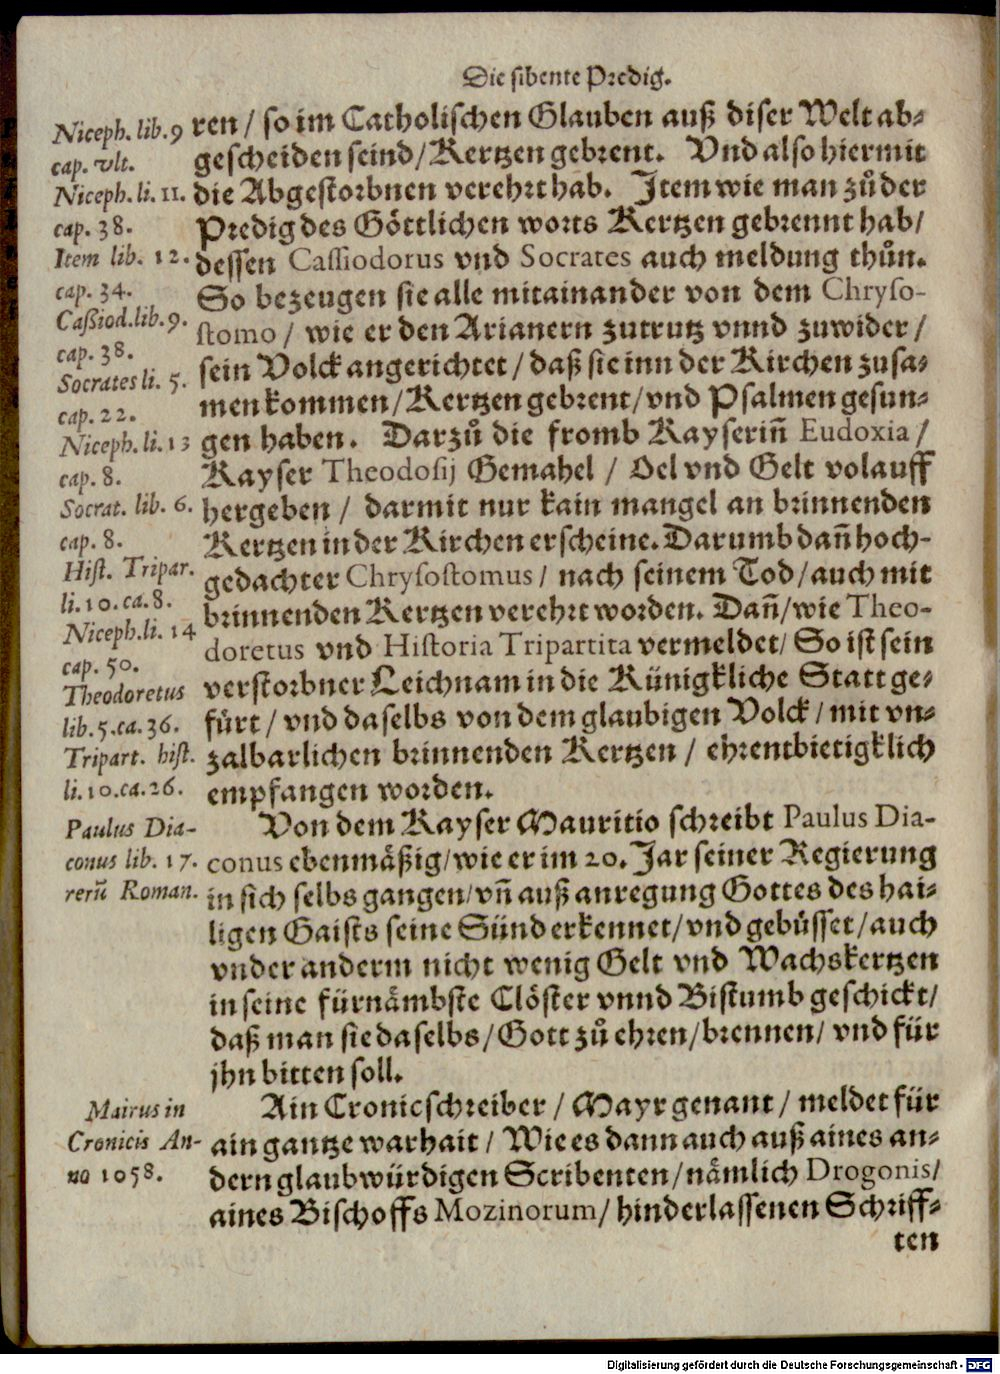 Die sibente Predig.
Niceph. lib. 9
cap. vlt.
Niceph. li. 11.
cap. 38.
Item lib. 12.
cap. 34.
Caßiod. lib. 9.
cap. 38.
Socrates li. 5.
cap. 22.
Niceph. li. 13
cap. 8.
Socrat. lib. 6.
cap. 8.
Hist. Tripar.
li. 10. ca. 8.
Niceph. li. 14
cap. 50.
Theodoretus
lib. 5. ca. 36.
Tripart. hist.
li. 10. ca. 26.
Paulus Dia-
conus lib. 17.
rerũ Roman.
Mairus in
Cronicis An-
no 1058.
ren / so im Catholischen Glauben auß diser Welt ab-
gescheiden seind / Kertzen gebrent. Vnd also hiermit
die Abgestorbnen verehrt hab. Item wie man zů der
Predig des Göttlichen worts Kertzen gebrennt hab /
dessen Cassiodorus vnd Socrates auch meldung thůn.
So bezeugen sie alle mitainander von dem Chryso-
stomo / wie er den Arianern zutrutz vnnd zuwider /
sein Volck angerichtet / daß sie inn der Kirchen zusa-
men kommen / Kertzen gebrent / vnd Psalmen gesun-
gen haben. Darzů die fromb Kayserin̄ Eudoxia /
Kayser Theodosij Gemahel / Oel vnd Gelt volauff
hergeben / darmit nur kain mangel an brinnenden
Kertzen in der Kirchen erscheine. Darumb dan̄ hoch-
gedachter Chrysostomus / nach seinem Tod / auch mit
brinnenden Kertzen verehrt worden. Dan̄ / wie Theo-
doretus vnd Historia Tripartita vermeldet / So ist sein
verstorbner Leichnam in die Künigkliche Statt ge-
fürt / vnd daselbs von dem glaubigen Volck / mit vn-
zalbarlichen brinnenden Kertzen / ehrentbietigklich
empfangen worden.
Von dem Kayser Mauritio schreibt Paulus Dia-
conus ebenmäßig / wie er im 20. Jar seiner Regierung
in sich selbs gangen / vn̄ auß anregung Gottes des hai-
ligen Gaists seine Sünd erkennet / vnd gebüsset / auch
vnder anderm nicht wenig Gelt vnd Wachskertzen
in seine fürnämbste Clöster vnnd Bistumb geschickt /
daß man sie daselbs / Gott zů ehren / brennen / vnd für
jhn bitten soll.
Ain Cronicschreiber / Mayr genant / meldet für
ain gantze warhait / Wie es dann auch auß aines an-
dern glaubwürdigen Scribenten / nämlich Drogonis /
aines Bischoffs Mozinorum / hinderlassenen Schriff-
ten
Digitalisierung gefördert durch die Deutsche Forschungsgemeinschaft - DFG